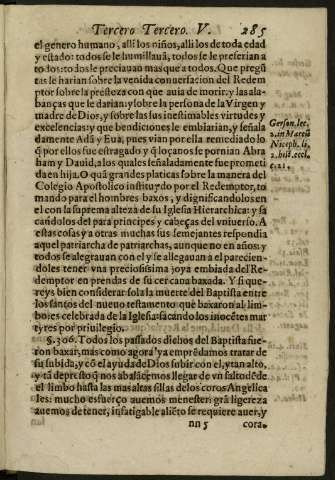 Tercero Tercero. V. 285
el genero humano, alli los niños, alli los de toda edad
y estado: todos se le humillauã, todos se le preferian a
todos: todos le preciauan mas que a todos. Que pregũ
tas le harian sobre la venida conuersacion del Redem
ptor sobre la presteza con que auia de morir: y las ala-
banças que le darian: y sobre la persona de la Virgen y
madre de Dios, y sobre las sus inestimables virtudes y
excelencias: y que bendiciones le embiarian, y señala
damente Adã y Eua, pues vian por ella remediado lo
q̃ por ellos fue estragado y q̃ loçanos se pornian Abra
ham y Dauid, a los quales señaladamente fue prometi
da en hija. O quã grandes platicas sobre la manera del
Colegio Apostolico instituydo por el Redemptor, to
mando para el hombres baxos, y dignificandolos en
el con la suprema alteza de su Iglesia Hierarchica: y sa
candolos del para principes y cabeças del vniuerso. A
estas cosas y a otras muchas sus semejantes respondia
aquel patriarcha de patriarchas, aunque no en años: y
todos se alegrauan con el y se allegauan a el parecien-
doles tener vna preciosissima joya embiada del Re-
demptor en prendas de su cercana baxada. Y si que-
reys bien considerar sola la muerte del Baptista entre
los sanctos del nueuo testamento que baxaron al lim-
bo: es celebrada de la Iglesia: sacando los inocẽtes mar
tyres por priuilegio.
§. 306. Todos los passados dichos del Baptista fue-
ron baxar, mas como agora ya emprẽdamos tratar de
su subida, y cõ el ayuda de Dios subir con el, y tan alto,
y tã de presto q̃ nos abalãcemos llegar de vn salto dẽde
el limbo hasta las mas altas sillas de los coros Angelica
les: mucho esfuerço auemos menester: grã ligereza
auemos de tener, infatigable aliẽto se requiere auer, y
nn 5 cora-
Gerson. lec.
2. in Marcũ
Niceph. li.
2. hist. eccl.
c. 21.